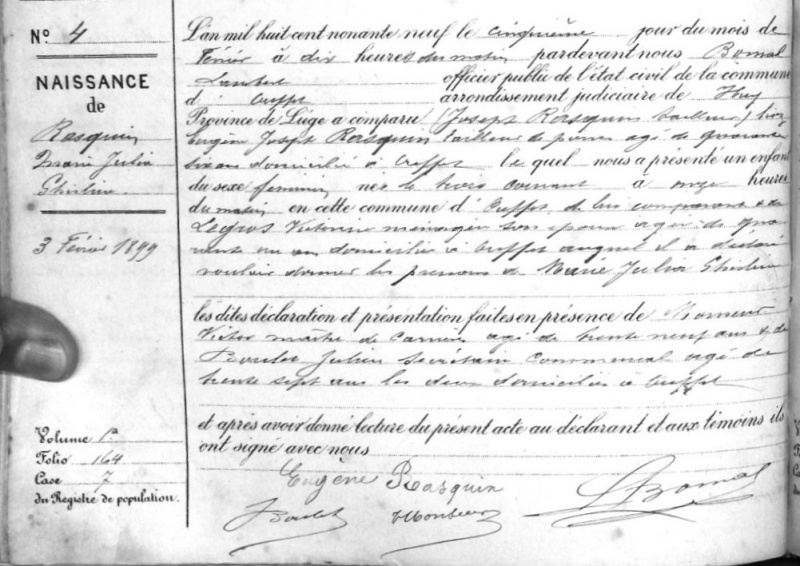 N° 4
NAISSANCE
de
Rasquin
Marie Julia
Ghisline
3 Février 1899
Volume 1er
Folio 164
Case 7
du Registre de population.
L'an mil huit cent nonante neuf le cinquième jour du mois de
Février à dix heures du matin pardevant nous Bomal
Lambert officier public de l'état civil de la commune
d' arrondissement judiciaire de Huy
Province de Liége a comparu (Joseph Rasquin tailleur)
Eugène Joseph Rasquin tailleur de pierres agé de quarante
six ans domicilié à le quel nous a présenté un enfant
du sexe féminin née le trois courant à onze heures
du matin en cette commune d' de lui comparant & de
Legros Victorine ménagère son épouse agée de qua
rante un ans domiciliée à auquel il a déclaré
vouloir donner les prénoms de Marie Julia Ghisline
les dites déclaration et présentation faites en présence de Monseur
Victor maître de carrières agé de trente neuf ans & de
Boulet Julien secrétaire communal agé de
trente sept ans les deux domiciliés à
et après avoir donné lecture du présent acte au déclarant et aux témoins ils
ont signé avec nous
Eugène Rasquin
LBomal
JBoulet VMonseur